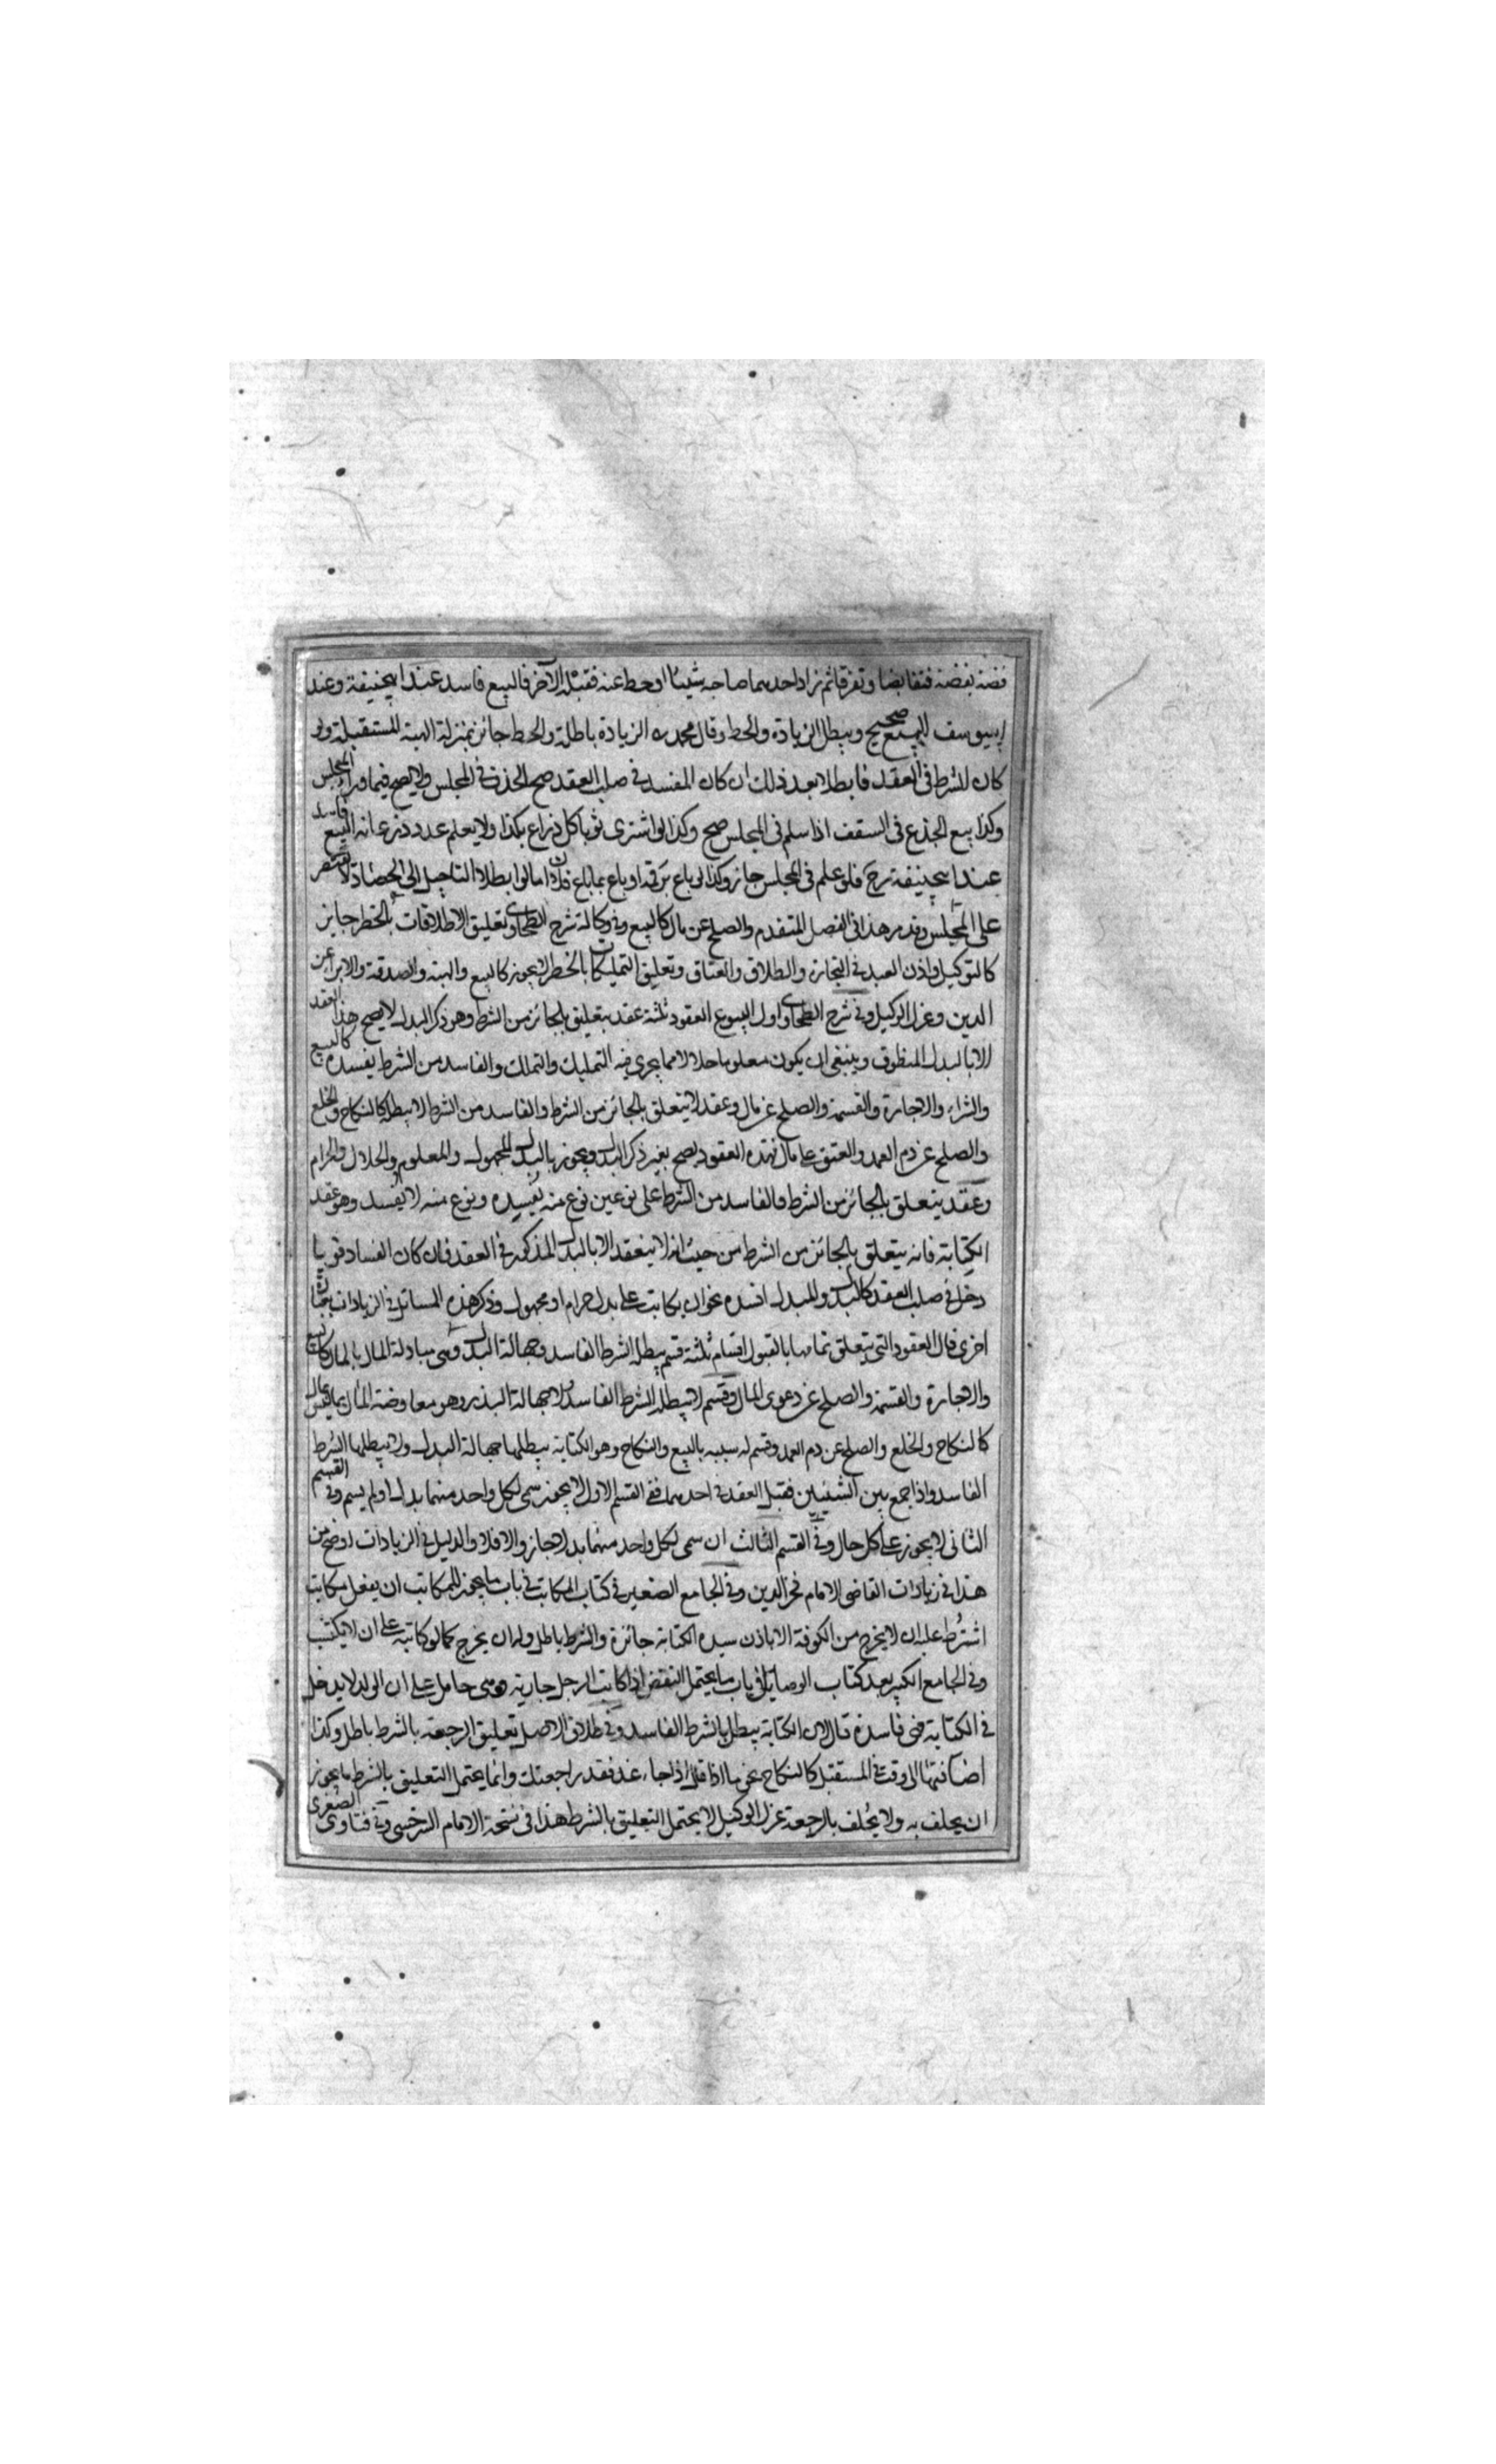 فضة بفضة فتقابضا وتفرقا ثم زاد احدهما صاحبه شيئا او حط عنه فقبله الآخر فالبيع فاسد عند ابيحنيفة وعند
ابييوسف البيع صحيح ويبطل الزيادة والحط وقال محمد ره الزيادة باطلة والحط جائز بمنزلة الهبة المستقبلة ولو
كان الشرط فى العقد فابطلا بعد ذلك ان كان المفسد فى صلب العقد صح الحذف فى المجلس ولا يصح فيما وراء المجلس
وكذا بيع الجذع فى السقف اذا سلم فى المجلس صح وكذا لو اشترى ثوبا كل ذراع بكذا ولا يعلم عدد ذرعانه البيع فاسد
عند ابيحنيفة رح فلو علم فى المجلس جاز وكذا لو باع برقمه او باع بما باع فلان اما لو ابطلا التاجيل الى الحصاد لا يقتصر
على المجلس وقد مر هذا فى الفصل المتقدم والصلح عن مال كالبيع وفى وكالة شرح الطحاوى وتعليق الاطلاقات بالخطر جايز
كالتوكيل واذن العبد فى التجارة والطلاق والعتاق وتعليق التمليكات بالخطر لا يجوز كالبيع والهبة والصدقة والابراء عن
الدين وعزل الوكيل وفى شرح الطحاوى اول البيوع العقود ثلثة عقد يتعلق بالجائز من الشرط وهو ذكر البدل لا يصح هذا العقد
الا بالبدل المنطوق وينبغى ان يكون معلوما حلالا مما يجرى فيه التمليك والتملك والفاسد من الشرط يفسده كالبيع
والشراء والاجارة والقسمة والصلح عن مال وعقد لا يتعلق بالجائز من الشرط والفاسد من الشرط لا يبطله كالنكاح والخلع
والصلح عن دم العمد والعتق على مال فهذه العقود يصح بغير ذكر البدل ويجوز بالبدل المجهول والمعلوم والحلال والحرام
وعقد يتعلق بالجائز من الشرط والفاسد من الشرط على نوعين نوع منه يفسده ونوع منه لا يفسد وهو عقد
الكتابة فانه يتعلق بالجائز من الشرط من حيث انه لا ينعقد الا بالبدل المذكور فى العقد فان كان الفساد قويا
دخل فى صلب العقد كالبدل والمبدل افسده نحو ان يكاتبه على بدل حرام او مجهول وذكر هذه المسائل فى الزيادات بعبارة
اخرى قال العقود التى يتعلق تمامها بالقبول اقسام ثلثة قسم يبطله الشرط الفاسد وجهالة البدل وهى مبادلة المال بالمال كالبيع
والاجارة والقسمة والصلح عن دعوى المال وقسم لا يبطله الشرط الفاسد ولا جهالة البدل وهو معاوضة المال بما ليس بمال
كالنكاح والخلع والصلح عن دم العمد وقسم له شبه بالبيع والنكاح وهو الكتابة يبطلها جهالة البدل ولا يبطلها الشرط
الفاسد واذا جمع بين الشيئين فقبل العقد فى احدهما ففى القسم الاول لا يجوز سمى لكل واحد منهما بدلا او لم يسم وفى القسم
الثانى لا يجوز على كل حال وفى القسم الثالث ان سمى لكل واحد منهما بدلا جاز والا فلا والدليل فى الزيادات اوضح من
هذا فى زيادات القاضى الامام فخر الدين وفى الجامع الصغير فى كتاب المكاتب فى باب ما يجوز للمكاتب ان يفعل مكاتب
اشترط عليه ان لا يخرج من الكوفة الا باذن سيده الكتابة جائزة والشرط باطل وله ان يخرج كما لو كاتبه على ان لا يكتسب
وفى الجامع الكبير بعد كتاب الوصايا فى باب ما يحتمل النقض اذا كاتب الرجل جاريته وهى حامل على ان الولد لا يدخل
فى الكتابة فهى فاسدة قال لان الكتابة يبطل بالشرط الفاسد وفى طلاق الاصل تعليق الرجعة بالشرط باطل وكذا
اضافتها الى وقت فى المستقبل كالنكاح نحو ما اذا قال اذا جاء غد فقد راجعتك وانما يحتمل التعليق بالشرط ما يجوز
ان يحلف به ولا يحلف بالرجعة عزل الوكيل لا يحتمل التعليق بالشرط هذا فى نسخة الامام السرخسى وفى فتاوى الصغرى